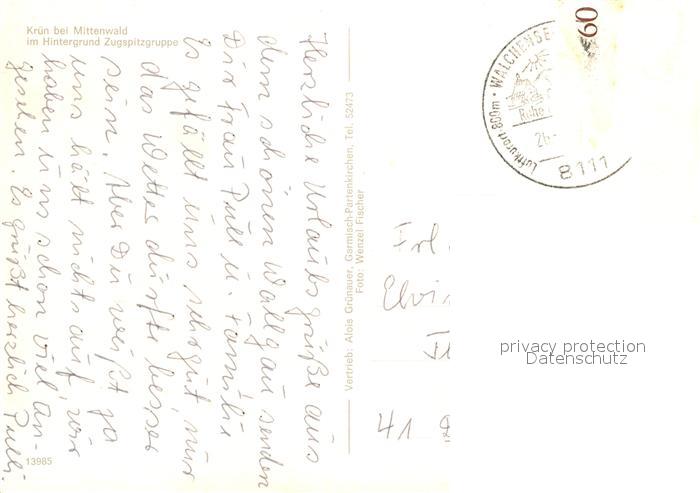 Krün bei Mittenwald
im Hintergrund Zugspitzgruppe
Herzliche Urlaubsgrüße aus
dem schönen Wallgau senden
Dir Frau Pull u. Familie
Es gefällt uns sehr gut nur
das Wetter dürfte besser
sein. Aber Du weißt ja
uns hält nichts auf, wir
haben uns schon viel an-
gesehen. Es grüßt herzlich
13985
Vertrieb: Alois Grünauer, Garmisch-Partenkirchen, Tel. 52473
Foto: Wenzel Fischer
60
Luftkurort 800m · WALCHENSE
Ruhe
26
8111
Frl.
Elvi
41
privacy protection
Datenschutz